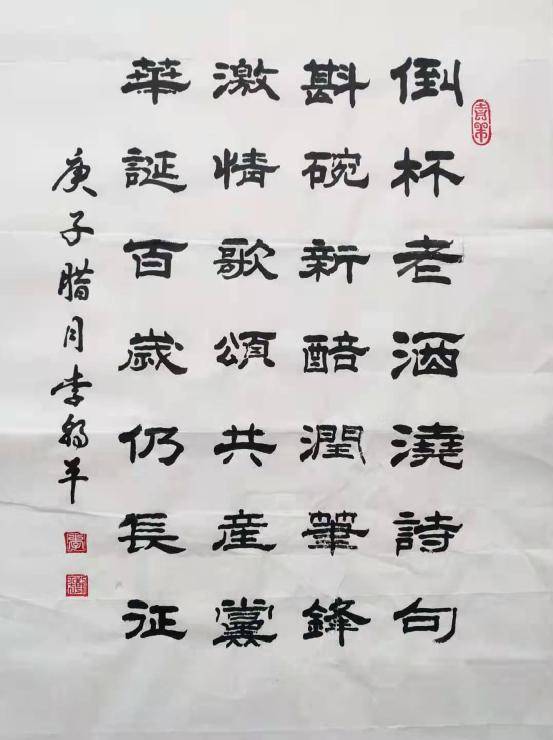 倒杯老酒澆詩句
斟碗新醅潤筆鋒
激情歌頌共産黨
華誕百歲仍長征
庚子腊月李
平